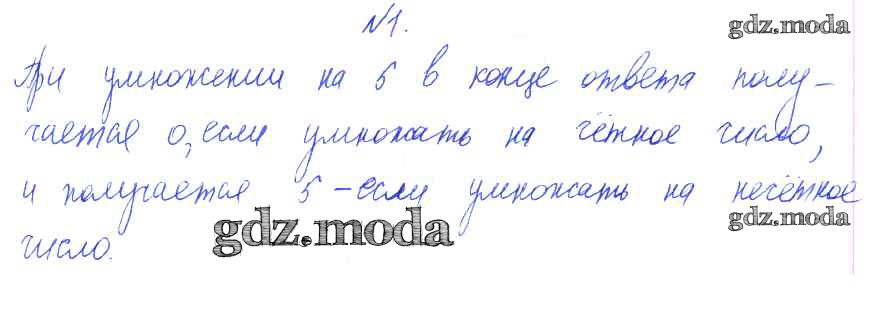 №1.
gdz.moda
При умножении на 5 в конце ответа полу-
чается 0, если умножать на чётное число,
и получается 5 - если умножать на нечётное
gdz.moda
gdz.moda
число.